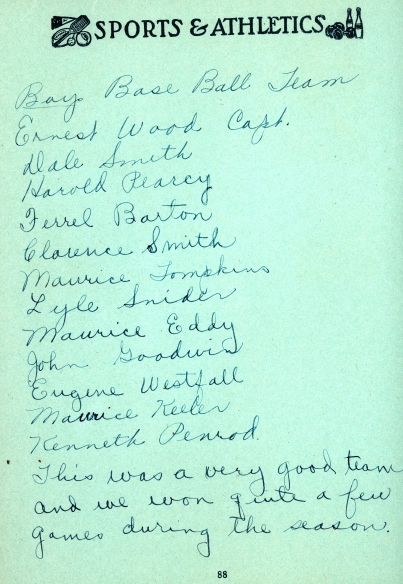 SPORTS & ATHLETICS
Boys Base Ball Team
Ernest Wood Capt.
Dale Smith
Harold Pearcy
Ferrel Barton
Clarence Smith
Maurice Tompkins
Lyle Snider
Maurice Eddy
John Goodwin
Eugene Westfall
Maurice Keeler
Kenneth Penrod.
This was a very good team
and we won quite a few
games during the season.
88